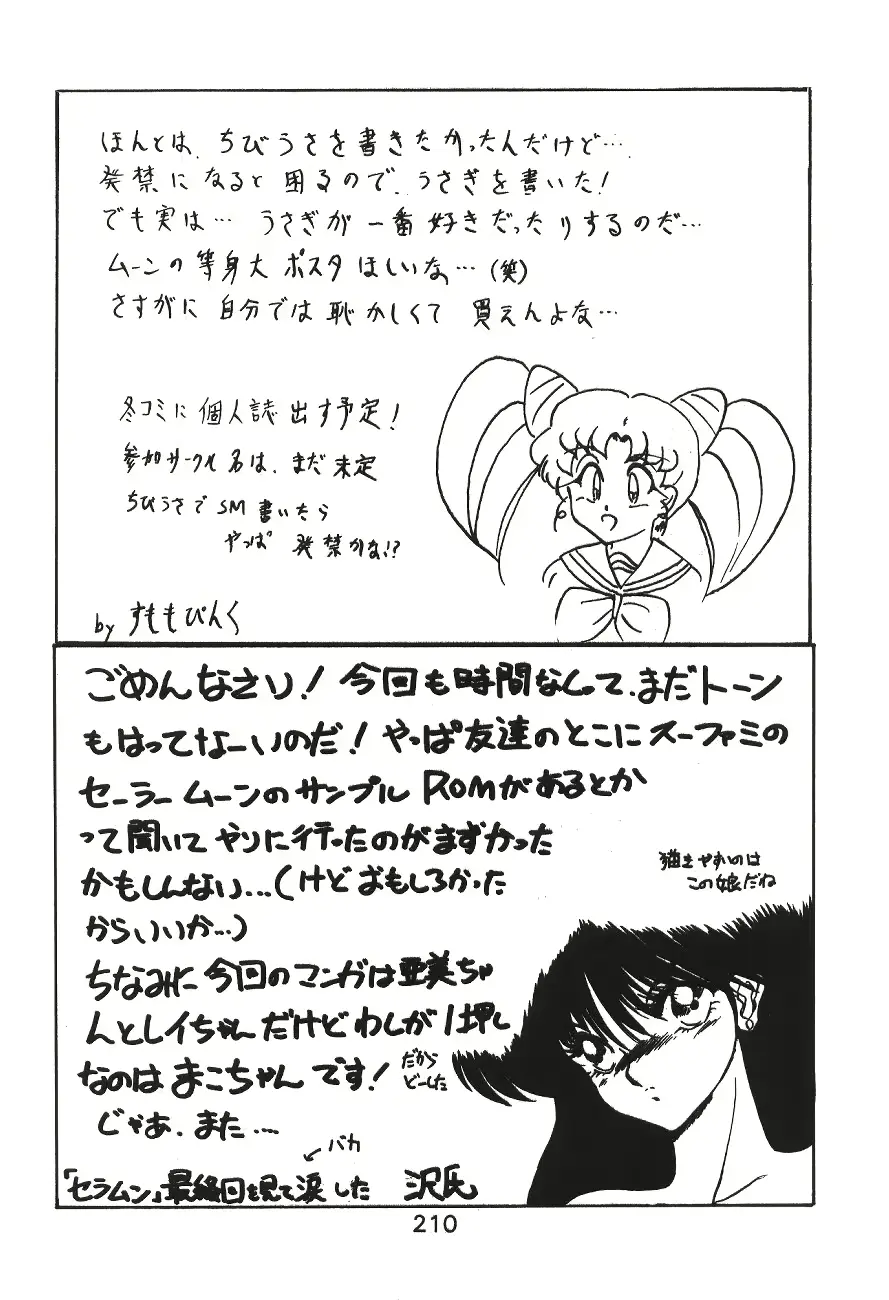 ほんとは、ちびうさを書きたかったんだけど…
発禁になると困るので、うさぎを書いた!
でも実は… うさぎが一番好きだったりするのだ…
ムーンの等身大ポスタほしいな…(笑)
さすがに自分では恥かしくて買えんよな…
冬コミに個人誌出す予定!
参加サークル名は、まだ未定
ちびうさでSM書いたら
やっぱ発禁かな!?
by すももぴんく
ごめんなさい! 今回も時間なくって、まだトーン
もはってなーいのだ! やっぱ友達のとこにスーファミの
セーラームーンのサンプルROMがあるとか
って聞いてやりに行ったのがまずかった
かもしんない…(けどおもしろかった
からいいか…)
ちなみに今回のマンガは亜美ちゃ
んとレイちゃんだけどわしが1押し
なのはまこちゃんです! だから
どーした
じゃあ、また…
バカ
「セラムン」最終回を見て涙した 沢氏
描きやすいのは
この娘だね
210